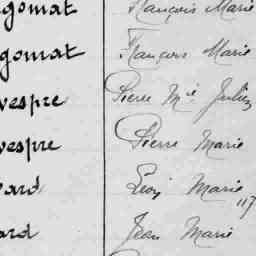 gomat François Marie
gomat François Marie
vespre Pierre Mie Julien
vespre Pierre Marie
vard Léon Marie
117
ard Jean Marie